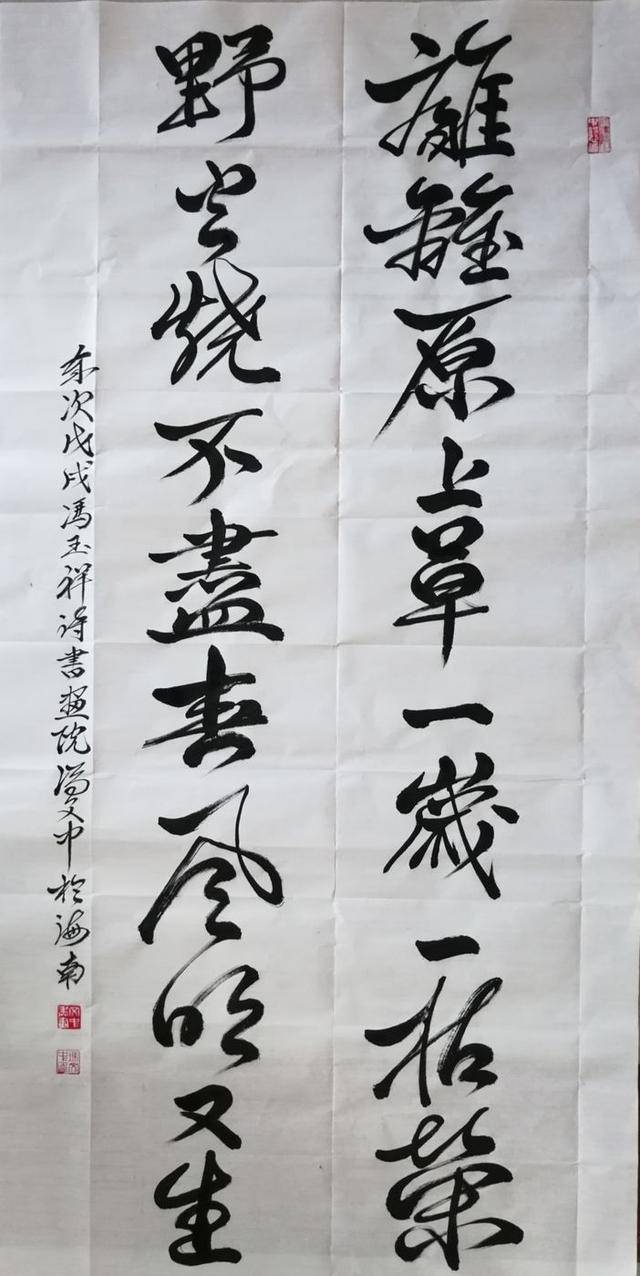 離離原上草一歲一枯榮
野火燒不盡春风吹又生
歲次戊戌冯玉祥诗書畫院冯文中於海南